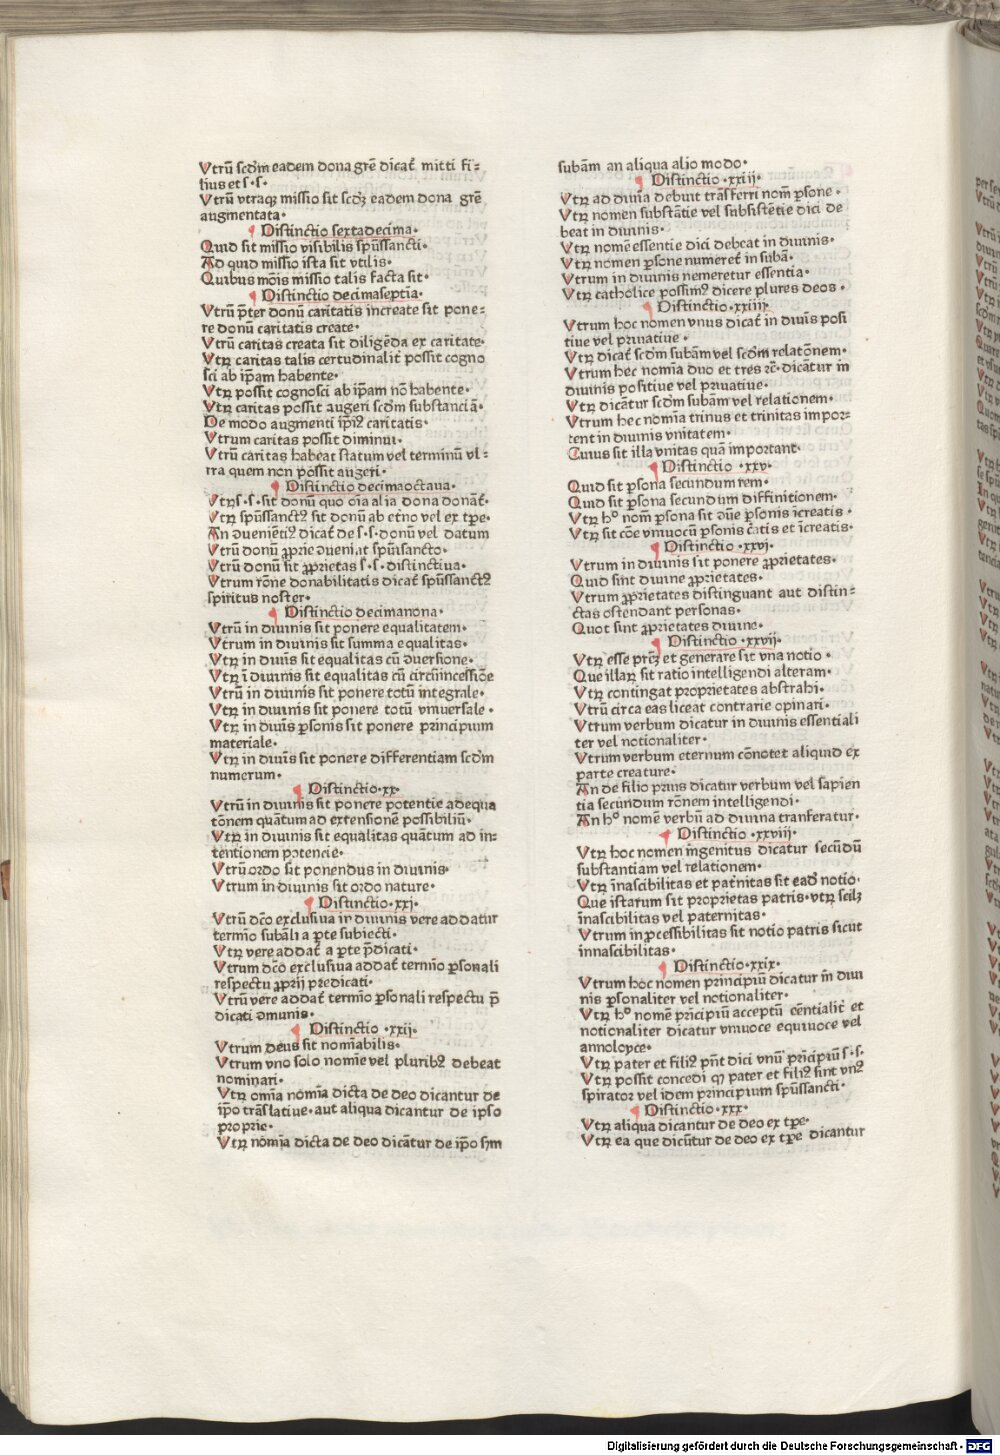 Vtrū scd̄m eadem dona grē dicat᷑ mitti fi⸗
lius et s·s·
Vtrū vtraqꝫ missio sit scd̄ꝫ eadem dona grē
augmentata·
¶ Distinctio sextadecima·
Quid sit missio visibilis spūssancti·
Ad quid missio ista sit vtilis·
Quibus mōis missio talis facta sit·
¶ Distinctio decimaseptīa·
Vtrū p̄ter donū caritatis increate sit pone⸗
re donū caritatis create·
Vtrū caritas creata sit diligēda ex caritate·
Vtꝝ caritas talis certudinalit᷑ possit cogno
sci ab ip̄am habente·
Vtꝝ possit cognosci ab ip̄am nō habente·
Vtꝝ caritas possit augeri scd̄m substanciā·
De modo augmenti ip̄iꝰ caritatis·
Vtrum caritas possit diminui·
Vtrū caritas habeat statum vel terminū vl⸗
tra quem non possit augeri·
¶ Distinctio decimaoctaua·
Vtꝝ s·s·sit donū quo oīa alia dona donāt᷑·
Vtꝝ spūssanctꝰ sit donū ab et̄no vel ex tꝑe·
An ꝯueniētiꝰ dicat᷑ de s·s·donū vel datum
Vtrū donū ꝓprie ꝯueniat spūisancto·
Vtrū donū sit ꝓprietas s·s·distinctiua·
Vtrum rōne donabilitatis dicat᷑ spūssanctꝰ
spiritus noster·
¶ Distinctio decimanona·
Vtrū in diuinis sit ponere equalitatem·
Vtrum in diuinis sit summa equalitas·
Vtꝝ in diuīs sit equalitas cū ꝯuersione·
Vtꝝ ī diuinis sit equalitas cū circūincessiōe
Vtrū in diuinis sit ponere totū integrale·
Vtꝝ in diuinis sit ponere totū vniuersale·
Vtꝝ in diuīs ꝑsonis sit ponere principium
materiale·
Vtꝝ in diuīs sit ponere differentiam scd̄m
numerum·
¶ Distinctio·xx·
Vtrū in diuinis sit ponere potentie adequa
tōnem quātum ad extensionē possibiliū·
Vtꝝ in diuinis sit equalitas quātum ad in⸗
tentionem potencie·
Vtrū ordo sit ponendus in diuinis·
Vtrum in diuinis sit ordo nature·
¶ Distinctio·xxj·
Vtrū dc̄o exclusiua in diuinis vere addatur
termīo subāli a ꝑte subiecti·
Vtꝝ vere addat᷑ a ꝑte p̄dicati·
Vtrum dc̄o exclusiua addat᷑ termīo ꝑsonali
respectu ꝓprij predicati·
Vtrū vere addat᷑ termīo ꝑsonali respectu p̄
dicati ꝯmunis·
¶ Distinctio ·xxij·
Vtrum deus sit nomīabilis·
Vtrum vno solo nomīe vel pluribꝰ debeat
nominari·
Vtꝝ omīa nomīa dicta de deo dicantur de
ip̄o trāslatiue·aut aliqua dicantur de ipso
proprie·
Vtꝝ nomīa dicta de deo dicātur de ip̄o scd̄m
subām an aliqua alio modo·
¶ Distinctio ·xxiij·
Vtꝝ ad diuīa debuit trāsferri nom̄ ꝑsone·
Vtꝝ nomen substātie vel subsistētie dici de
beat in diuinis·
Vtꝝ nomē essentie dici debeat in diuinis·
Vtꝝ nomen ꝑsone numeret᷑ in subā·
Vtrum in diuinis nemeretur essentia·
Vtꝝ catholice possimꝰ dicere plures deos·
¶ Distinctio·xxiiij·
Vtrum hoc nomen vnus dicat᷑ in diuīs posi
tiue vel priuatiue·
Vtꝝ dicat᷑ scd̄m subām vel scd̄m relatōnem·
Vtrum hec nomīa duo et tres ⁊c̄·dicātur in
diuinis positiue vel priuatiue·
Vtꝝ dicātur scd̄m subām vel relationem·
Vtrum hec nomīa trinus et trinitas impor⸗
tent in diuinis vnitatem·
Cuius sit illa vnitas quā important·
¶ Distinctio ·xxv·
Quid sit ꝑsona secundum rem·
Quid sit ꝑsona secundum diffinitionem·
Vtꝝ hᵒ nom̄ ꝑsona sit ꝯūe ꝑsonis īcreatis·
Vtꝝ sit cōe vniuocū ꝑsonis c̄atis et īcreatis·
¶ Distinctio ·xxvj·
Vtrum in diuinis sit ponere ꝓprietates·
Quid sint diuine ꝓprietates·
Vtrum ꝓprietates distinguant aut distin⸗
ctas ostendant personas·
Quot sint ꝓprietates diuine·
¶ Distinctio ·xxvij·
Vtꝝ esse pr̄eꝫ et generare sit vna notio·
Que illaꝝ sit ratio intelligendi alteram·
Vtꝝ contingat proprietates abstrahi·
Vtrū circa eas liceat contrarie opinari·
Vtrum verbum dicatur in diuinis essentiali
ter vel notionaliter·
Vtrum verbum eternum cōnotet aliquid ex
parte creature·
An de filio prius dicatur verbum vel sapien
tia secundum rōnem intelligendi·
An hᵒ nomē verbū ad diuina tranferatur·
¶ Distinctio ·xxviij·
Vtꝝ hoc nomen īngenitus dicatur secūdū
substantiam vel relationem·
Vtꝝ īnascibilitas et pat᷑nitas sit ead̄ notio·
Que istarum sit proprietas patris·vtꝝ scilꝫ
īnascibilitas vel paternitas·
Vtrum inꝓcessibilitas sit notio patris sicut
innascibilitas·
¶ Distinctio·xxix·
Vtrum hoc nomen principiū dicatur in diui
nis ꝑsonaliter vel notionaliter·
Vtꝝ hᵒ nomē prīcipiū acceptū cēntialit᷑ et
notionaliter dicatur vniuoce equiuoce vel
annoloyce·
Vtꝝ pater et filiꝰ pn̄t dici vnū prīcipiū s·s·
Vtꝝ possit concedi ꝙ pater et filiꝰ sint vnꝰ
spirator vel idem principium spūssancti·
¶ Distinctio·xxx·
Vtꝝ aliqua dicantur de deo ex tꝑe·
Vtꝝ ea que dicūtur de deo ex tꝑe dicantur
Digitalisierung gefördert durch die Deutsche Forschungsgemeinschaft - DFG